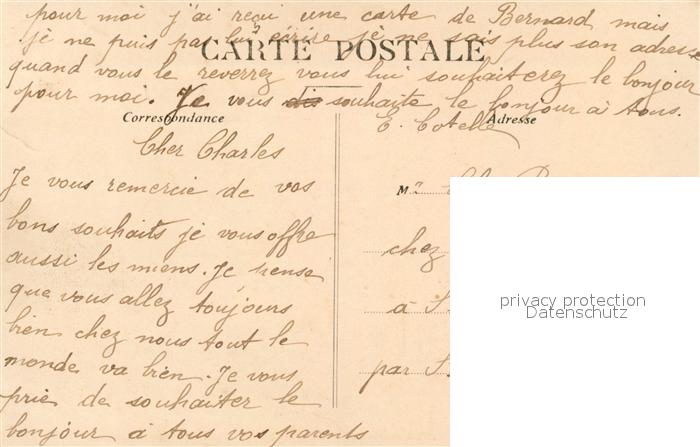 pour moi j'ai reçu une carte de Bernard mais
je ne puis pas lui écrire je ne sais plus son adresse
CARTE POSTALE
quand vous le reverrez vous lui souhaiterez le bonjour
pour moi. Je vous dis souhaite le bonjour à tous.
E. Cotelle
Correspondance
Adresse
Cher Charles
Je vous remercie de vos
bons souhaits je vous offre
aussi les miens. Je pense
que vous allez toujours
bien chez nous tout le
monde va bien. Je vous
prie de souhaiter le
bonjour à tous vos parents
Mr
chez
à
par
privacy protection
Datenschutz